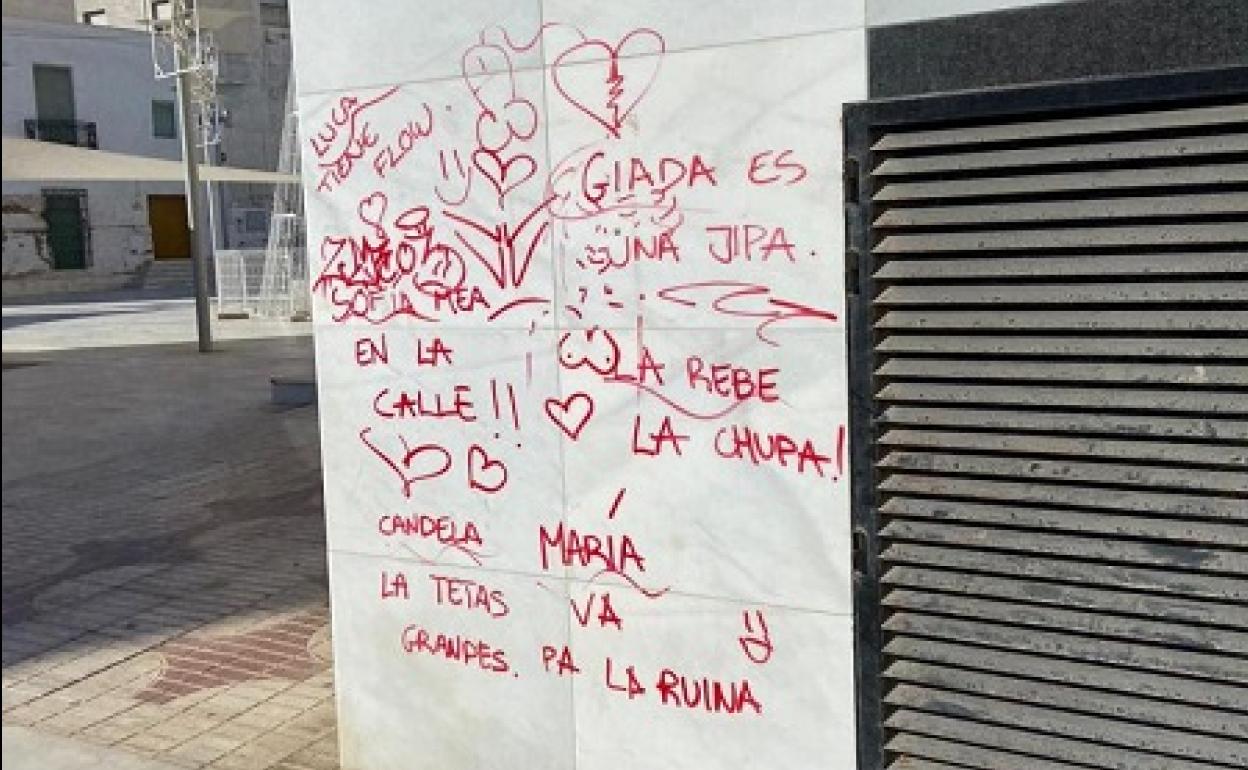 LUCA
TIENE
FLOW.
SOFIA MEA
EN LA
CALLE!!
CANDELA
LA TETAS
GRANDES.
GIADA ES
UNA JIPA.
LA REBE
LA CHUPA!
MARÍA
VA
PA LA RUINA